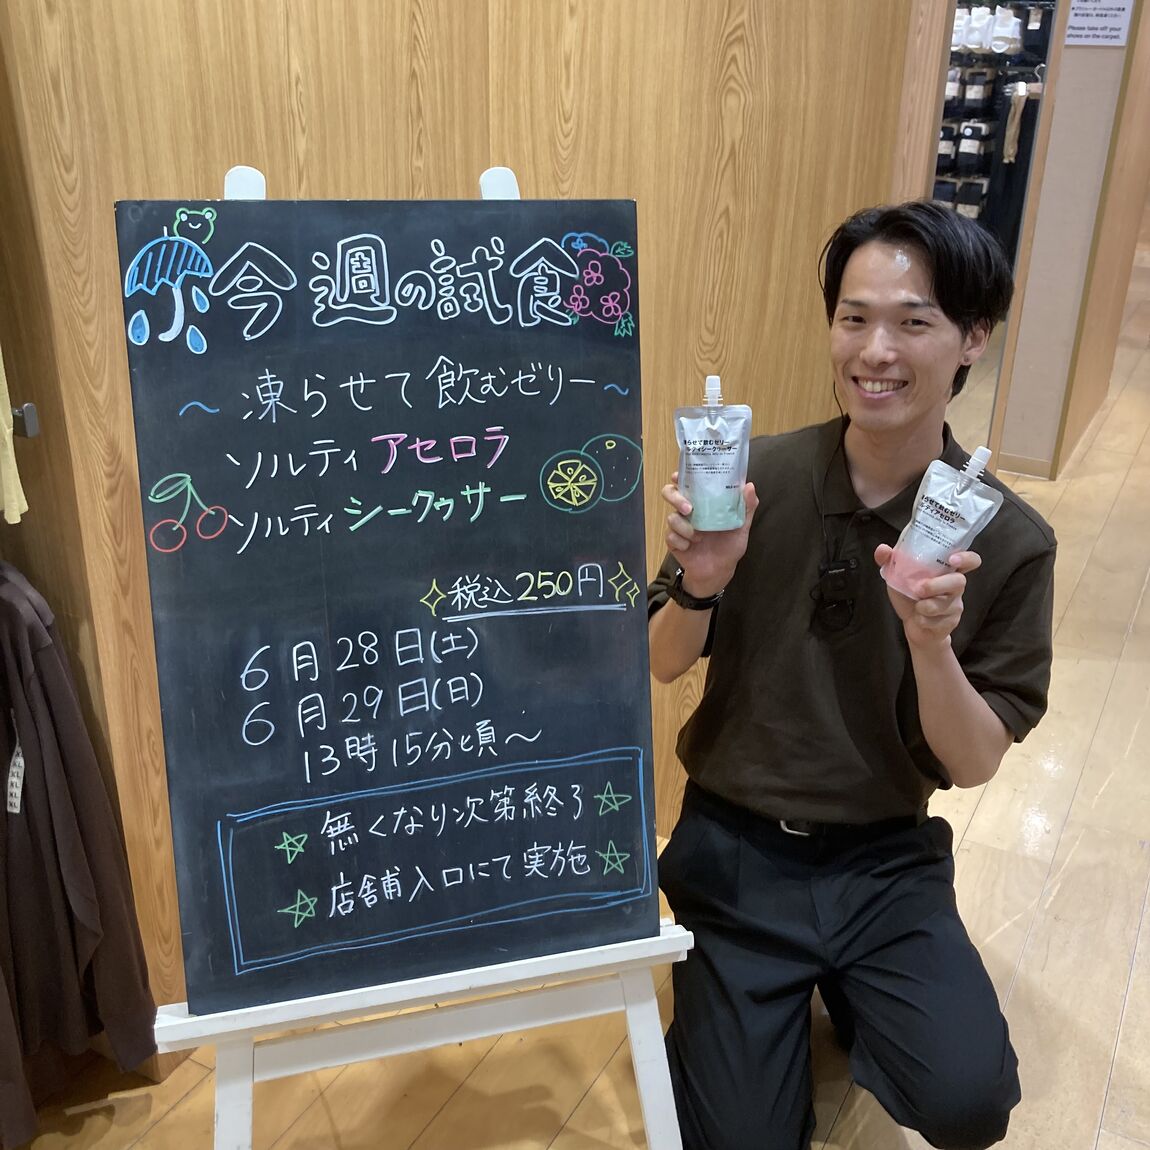 今週の試食
～凍らせて飲むゼリー～
ソルティアセロラ
ソルティシークヮサー
税込250円
6月28日(土)
6月29日(日)
13時15分頃～
無くなり次第終了
店舗入口にて実施
凍らせて飲むゼリー
ソルティシークヮーサー
らせて飲むゼリー
ルティアセロラ
Please take off your
shoes on the carpet.
XL
XL
XL
XL